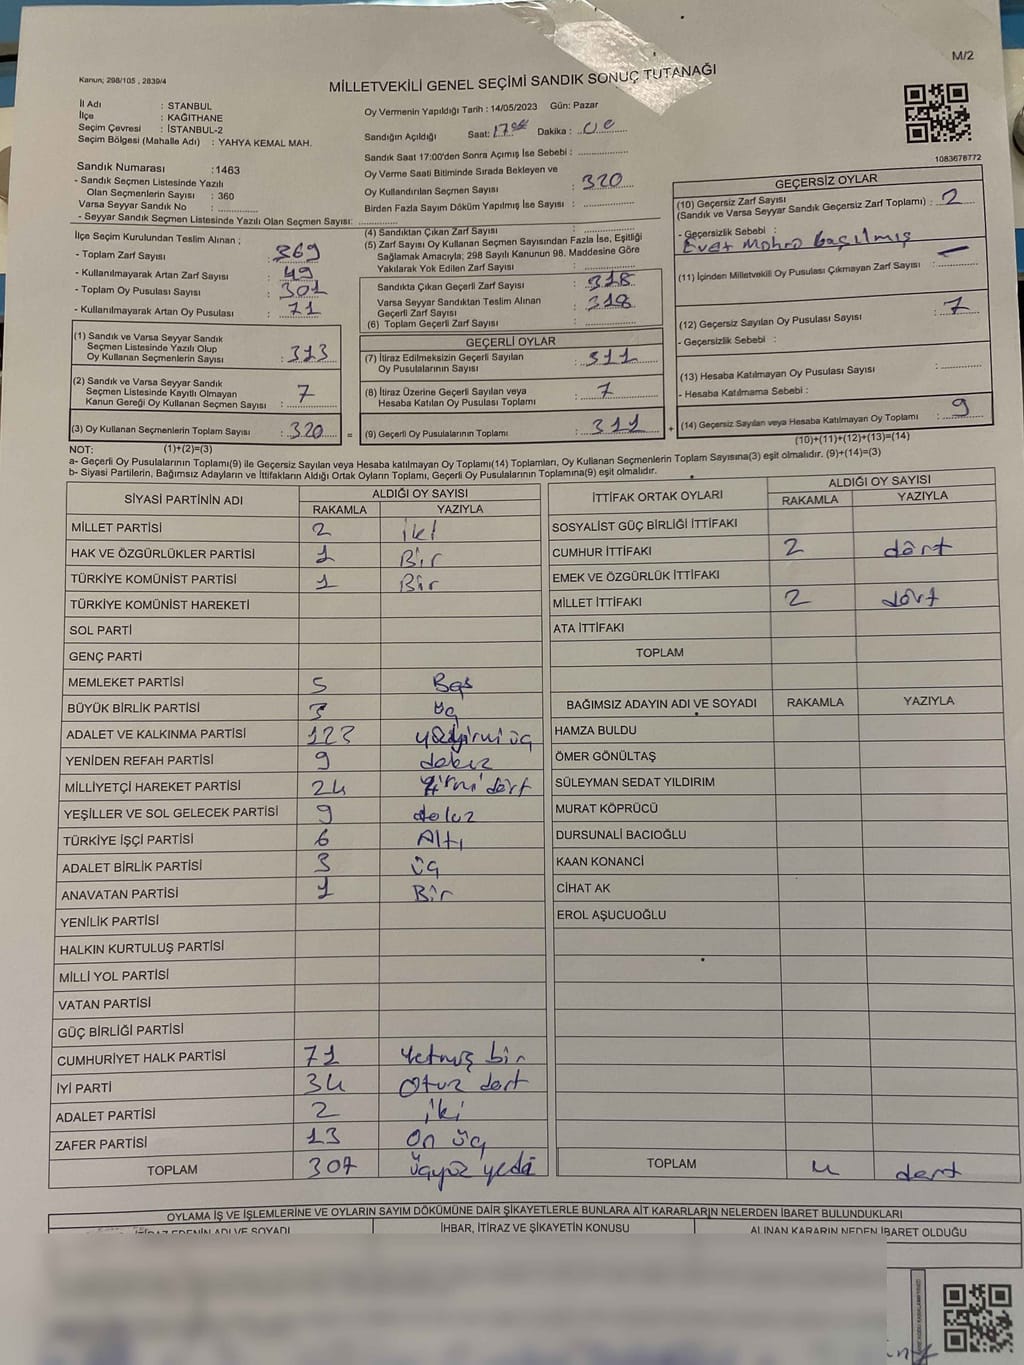 M/2
Kanun; 298/105 , 2839/4
MİLLETVEKİLİ GENEL SEÇİMİ SANDIK SONUÇ TUTANAĞI
İl Adı : STANBUL
İlçe : KAĞITHANE
Seçim Çevresi : İSTANBUL-2
Seçim Bölgesi (Mahalle Adı) : YAHYA KEMAL MAH.
Oy Vermenin Yapıldığı Tarih : 14/05/2023 Gün: Pazar
Sandığın Açıldığı Saat: 17 Dakika :
Sandık Saat 17:00'den Sonra Açımış İse Sebebi :
Oy Verme Saati Bitiminde Sırada Bekleyen ve
Oy Kullandırılan Seçmen Sayısı : 320
Birden Fazla Sayım Döküm Yapılmış İse Sayısı :
1083678772
Sandık Numarası :1463
- Sandık Seçmen Listesinde Yazılı
Olan Seçmenlerin Sayısı : 360
Varsa Seyyar Sandık No :
- Seyyar Sandık Seçmen Listesinde Yazılı Olan Seçmen Sayısı:
İlçe Seçim Kurulundan Teslim Alınan ;
- Toplam Zarf Sayısı : 369
- Kullanılmayarak Artan Zarf Sayısı : 49
- Toplam Oy Pusulası Sayısı : 301
- Kullanılmayarak Artan Oy Pusulası : 71
(1) Sandık ve Varsa Seyyar Sandık
Seçmen Listesinde Yazılı Olup
Oy Kullanan Seçmenlerin Sayısı : 313
(2) Sandık ve Varsa Seyyar Sandık
Seçmen Listesinde Kayıtlı Olmayan
Kanun Gereği Oy Kullanan Seçmen Sayısı : 7
(3) Oy Kullanan Seçmenlerin Toplam Sayısı : 320
(4) Sandıktan Çıkan Zarf Sayısı :
(5) Zarf Sayısı Oy Kullanan Seçmen Sayısından Fazla İse, Eşitliği
Sağlamak Amacıyla; 298 Sayılı Kanunun 98. Maddesine Göre
Yakılarak Yok Edilen Zarf Sayısı :
Sandıkta Çıkan Geçerli Zarf Sayısı : 318
Varsa Seyyar Sandıktan Teslim Alınan
Geçerli Zarf Sayısı : 318
(6) Toplam Geçerli Zarf Sayısı :
GEÇERLİ OYLAR
(7) İtiraz Edilmeksizin Geçerli Sayılan
Oy Pusulalarının Sayısı : 311
(8) İtiraz Üzerine Geçerli Sayılan veya
Hesaba Katılan Oy Pusulası Toplamı : 7
= (9) Geçerli Oy Pusulalarının Toplamı : 311 +
GEÇERSİZ OYLAR
(10) Geçersiz Zarf Sayısı
(Sandık ve Varsa Seyyar Sandık Geçersiz Zarf Toplamı) : 2
- Geçersizlik Sebebi :
Evet Mohro basılmış
(11) İçinden Milletvekili Oy Pusulası Çıkmayan Zarf Sayısı : —
(12) Geçersiz Sayılan Oy Pusulası Sayısı : 7
- Geçersizlik Sebebi :
(13) Hesaba Katılmayan Oy Pusulası Sayısı :
- Hesaba Katılmama Sebebi :
(14) Geçersiz Sayılan veya Hesaba Katılmayan Oy Toplamı : 9
NOT: (1)+(2)=(3)
(10)+(11)+(12)+(13)=(14)
a- Geçerli Oy Pusulalarının Toplamı(9) ile Geçersiz Sayılan veya Hesaba katılmayan Oy Toplamı(14) Toplamları, Oy Kullanan Seçmenlerin Toplam Sayısına(3) eşit olmalıdır. (9)+(14)=(3)
b- Siyasi Partilerin, Bağımsız Adayların ve İttifakların Aldığı Ortak Oyların Toplamı, Geçerli Oy Pusulalarının Toplamına(9) eşit olmalıdır.
SİYASİ PARTİNİN ADI ALDIĞI OY SAYISI
RAKAMLA YAZIYLA
MİLLET PARTİSİ 2 iki
HAK VE ÖZGÜRLÜKLER PARTİSİ 1 Bir
TÜRKİYE KOMÜNİST PARTİSİ 1 Bir
TÜRKİYE KOMÜNİST HAREKETİ
SOL PARTİ
GENÇ PARTİ
MEMLEKET PARTİSİ 5 Beş
BÜYÜK BİRLİK PARTİSİ 3 üç
ADALET VE KALKINMA PARTİSİ 123 yüzyirmi üç
YENİDEN REFAH PARTİSİ 9 dokuz
MİLLİYETÇİ HAREKET PARTİSİ 24 Yirmi dört
YEŞİLLER VE SOL GELECEK PARTİSİ 9 dokuz
TÜRKİYE İŞÇİ PARTİSİ 6 Altı
ADALET BİRLİK PARTİSİ 3 üç
ANAVATAN PARTİSİ 1 Bir
YENİLİK PARTİSİ
HALKIN KURTULUŞ PARTİSİ
MİLLİ YOL PARTİSİ
VATAN PARTİSİ
GÜÇ BİRLİĞİ PARTİSİ
CUMHURİYET HALK PARTİSİ 71 Yetmiş bir
İYİ PARTİ 34 Otuz dört
ADALET PARTİSİ 2 iki
ZAFER PARTİSİ 13 On üç
TOPLAM 307 Üçyüz yedi
İTTİFAK ORTAK OYLARI ALDIĞI OY SAYISI
RAKAMLA YAZIYLA
SOSYALİST GÜÇ BİRLİĞİ İTTİFAKI
CUMHUR İTTİFAKI 2 dört
EMEK VE ÖZGÜRLÜK İTTİFAKI
MİLLET İTTİFAKI 2 dört
ATA İTTİFAKI
TOPLAM
BAĞIMSIZ ADAYIN ADI VE SOYADI RAKAMLA YAZIYLA
HAMZA BULDU
ÖMER GÖNÜLTAŞ
SÜLEYMAN SEDAT YILDIRIM
MURAT KÖPRÜCÜ
DURSUNALİ BACIOĞLU
KAAN KONANCİ
CİHAT AK
EROL AŞUCUOĞLU
TOPLAM 4 dört
OYLAMA İŞ VE İŞLEMLERİNE VE OYLARIN SAYIM DÖKÜMÜNE DAİR ŞİKAYETLERLE BUNLARA AİT KARARLARIN NELERDEN İBARET BULUNDUKLARI
EDENİN ADI VE SOYADI İHBAR, İTİRAZ VE ŞİKAYETİN KONUSU ALINAN KARARIN NEDEN İBARET OLDUĞU